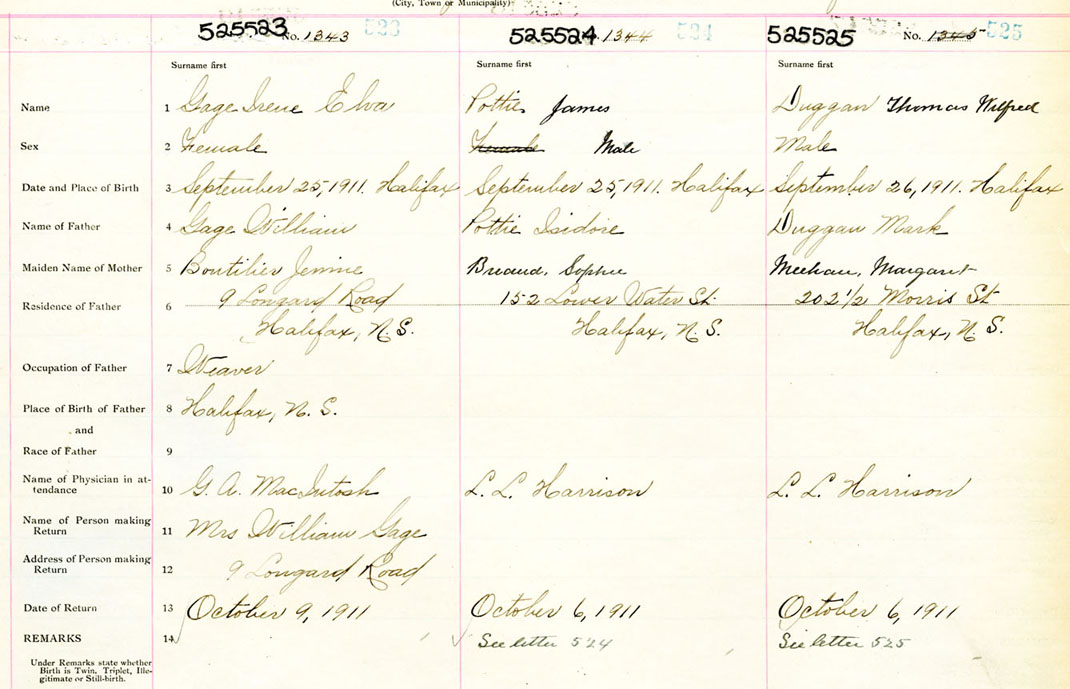 (City, Town or Municipality)
525523 No. 1343 523 525524 1344 524 525525 No. 1345 525
Surname first Surname first Surname first
Name 1 Gage Irene Elva Pottie James Duggan Thomas Wilfred
Sex 2 Female Female Male Male
Date and Place of Birth 3 September 25, 1911. Halifax September 25, 1911. Halifax September 26, 1911. Halifax
Name of Father 4 Gage William Pottie Isidore Duggan Mark
Maiden Name of Mother 5 Boutilier Jennie Breand, Sophie Meehan, Margaret
Residence of Father 6 9 Longard Road 152 Lower Water St. 202 1/2 Morris St
Halifax, N.S. Halifax, N.S. Halifax, N.S.
Occupation of Father 7 Weaver
Place of Birth of Father 8 Halifax, N.S.
and
Race of Father 9
Name of Physician in at-
tendance 10 G. A. MacIntosh L. L. Harrison L. L. Harrison
Name of Person making
Return 11 Mrs William Gage
Address of Person making
Return 12 9 Longard Road
Date of Return 13 October 9, 1911 October 6, 1911 October 6, 1911
REMARKS 14 See letter 524 See letter 525
Under Remarks state whether
Birth is Twin, Triplet, Ille-
gitimate or Still-birth.